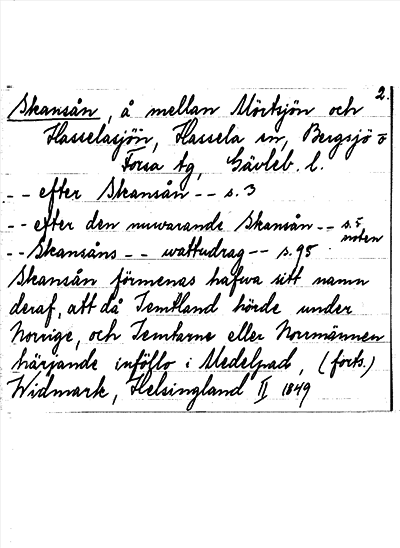 2.
Skansån, å mellan Mörtsjön och
Hasselasjön, Hassela sn, Bergsjö o
Forsa tg, Gävleb. l.
-- efter Skansån -- s. 3
-- efter den nuvarande Skansån -- s. 5 noten
-- Skansåns -- wattudrag -- s. 95
Skansån förmenas hafwa sitt namn
deraf, att då Jemtland hörde under
Norrige, och Jemtarne eller Norrmännen
härjande inföllo i Medelpad, (forts.)
Widmark, Helsingland II 1849